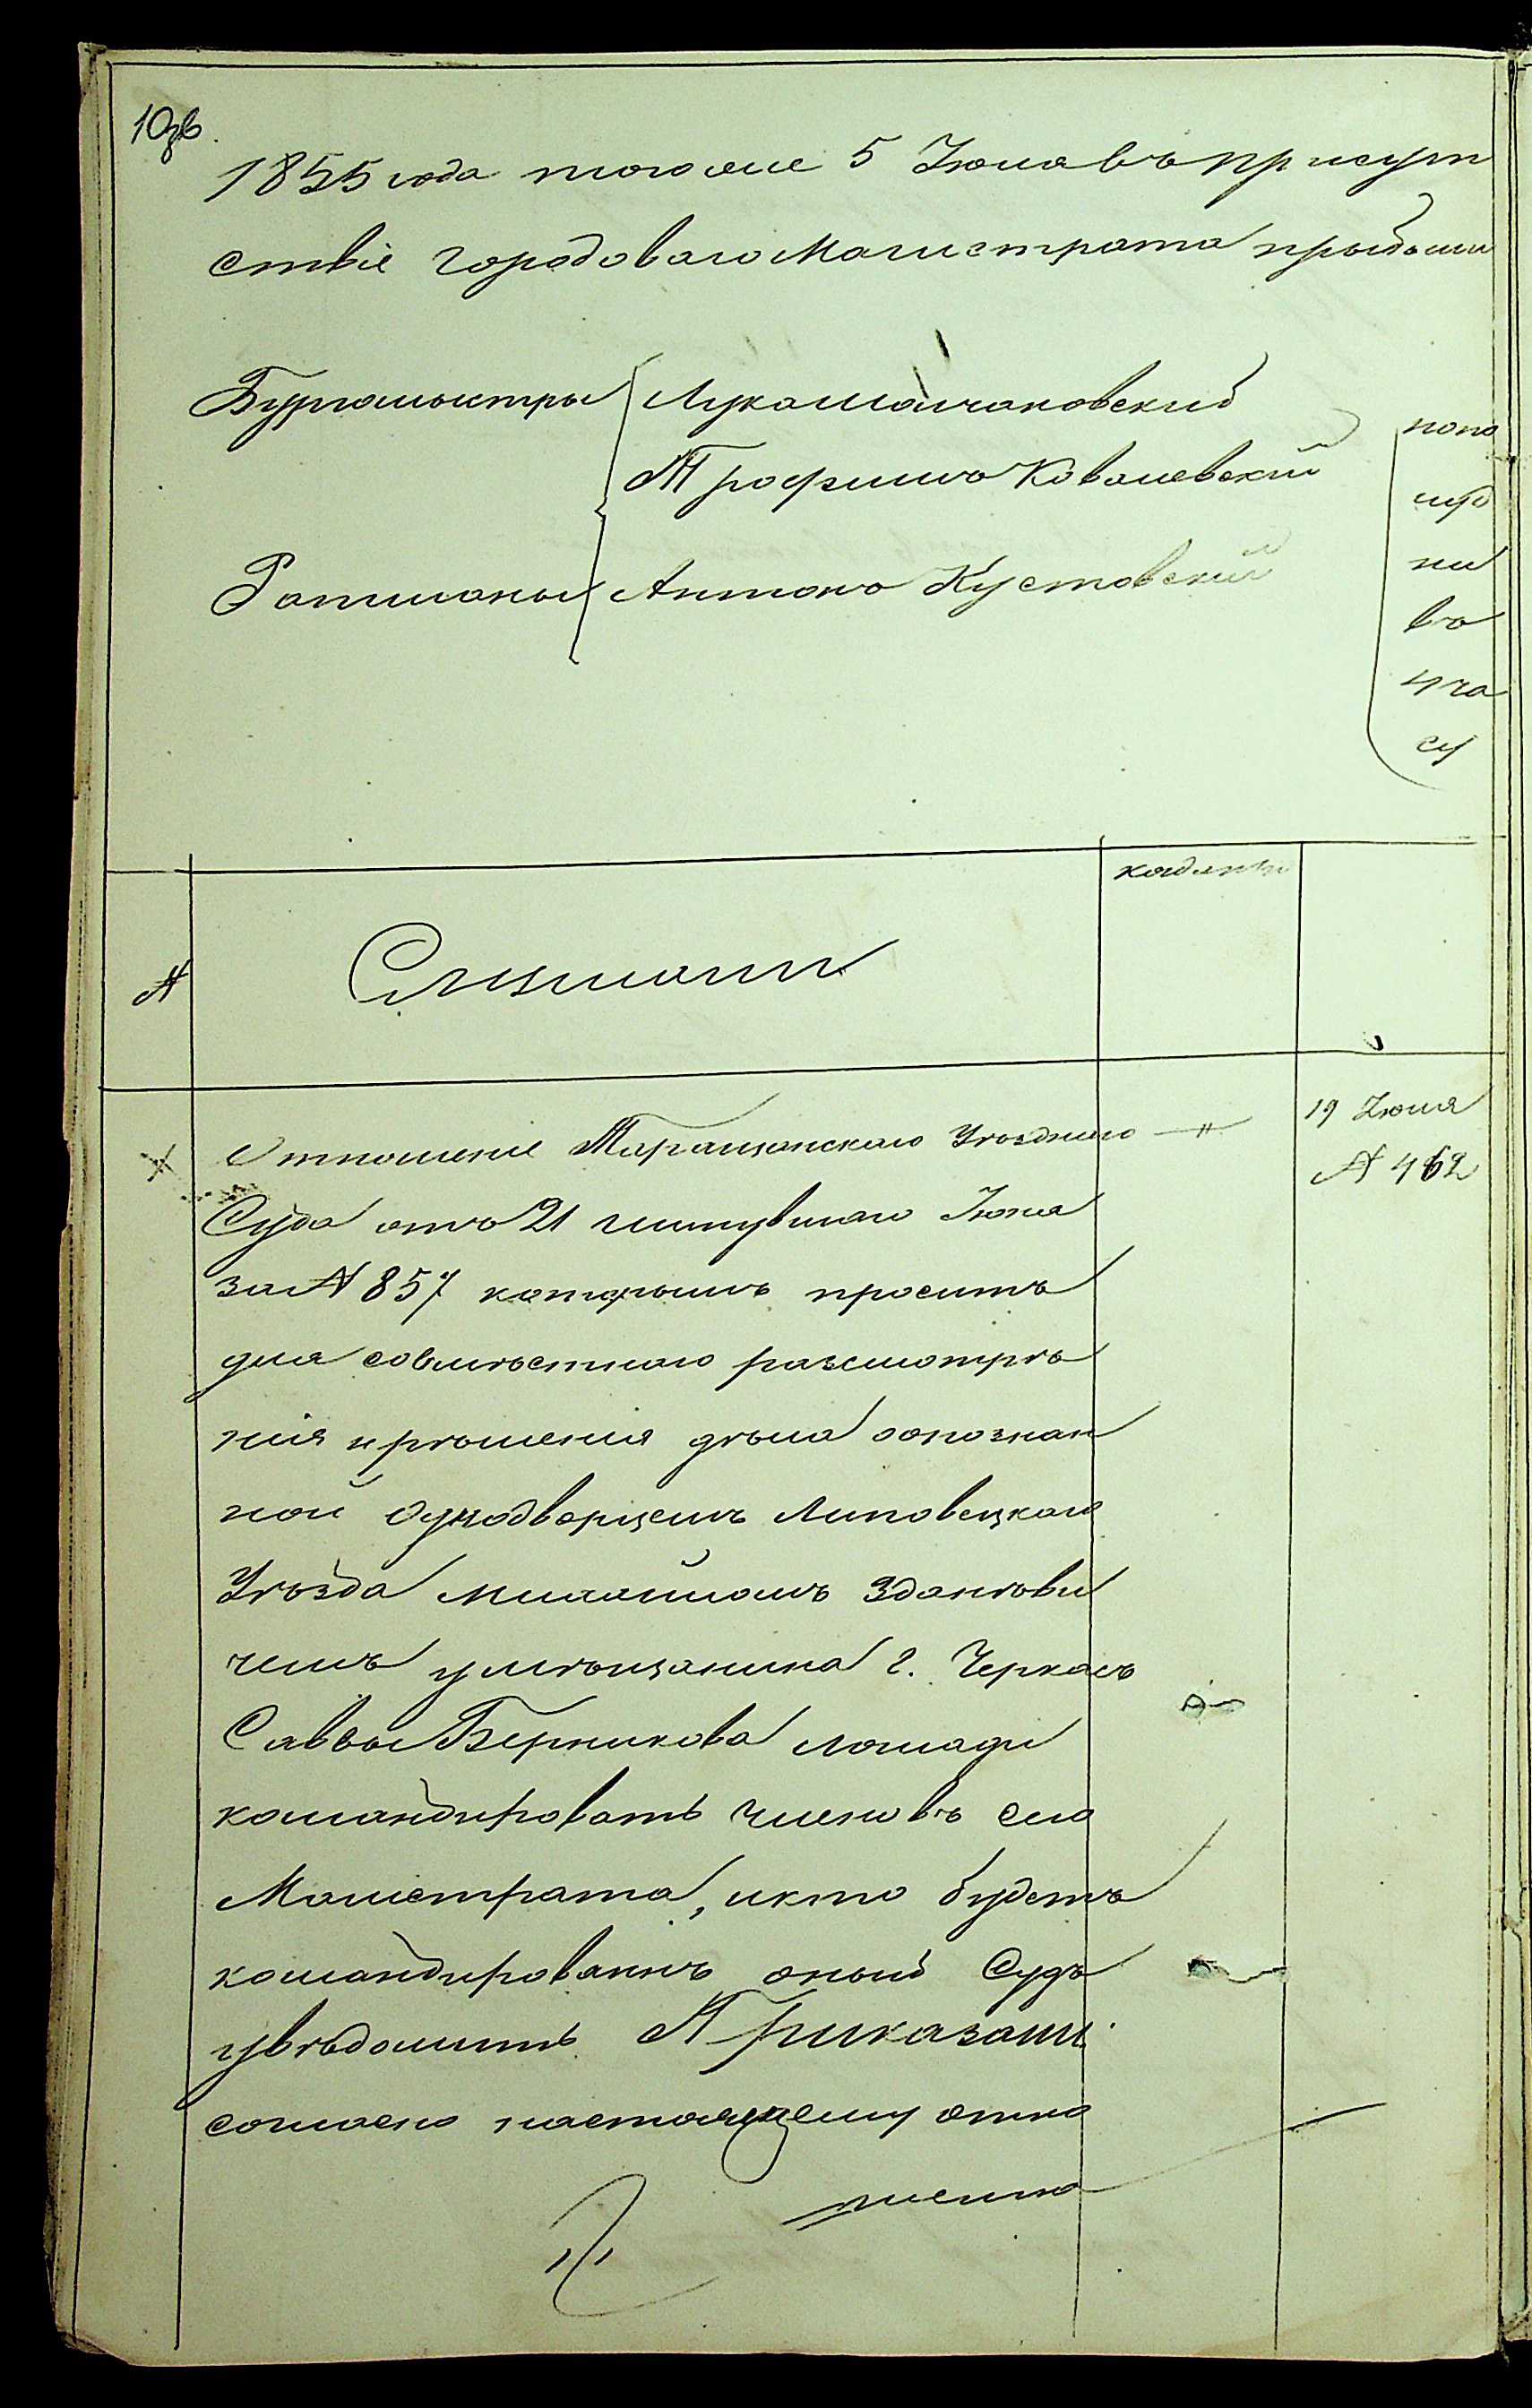 10зв.
1855 года того же 5 Июля въ присут
ствіе городоваго Магистрата прыбыли
Бургомыстры Лука Молчановский
Трофимъ Ковалевский
Ратманы Антонъ Кустовский
попо
луд
ни
въ
4 ча
су
№
Слушали
19 Июля
№ 462
Отношеніе Таращанскаго Уѣзднаго
Суда отъ 21 минувшаго Июня
за № 857 которымъ проситъ
для совмѣстнаго разсмотрѣ
нія и рѣшенія дѣла о опознан
ной однодворцемъ Липовецкаго
Уѣзда Михайломъ Здантови
чемъ у мѣщанина г. Черкасъ
Саввы Берникова лошади
командировать членовъ сего
Магистрата, и кто будетъ
командированъ оный Судъ
увѣдомить Приказали:
согласно настоящему отно
шенію